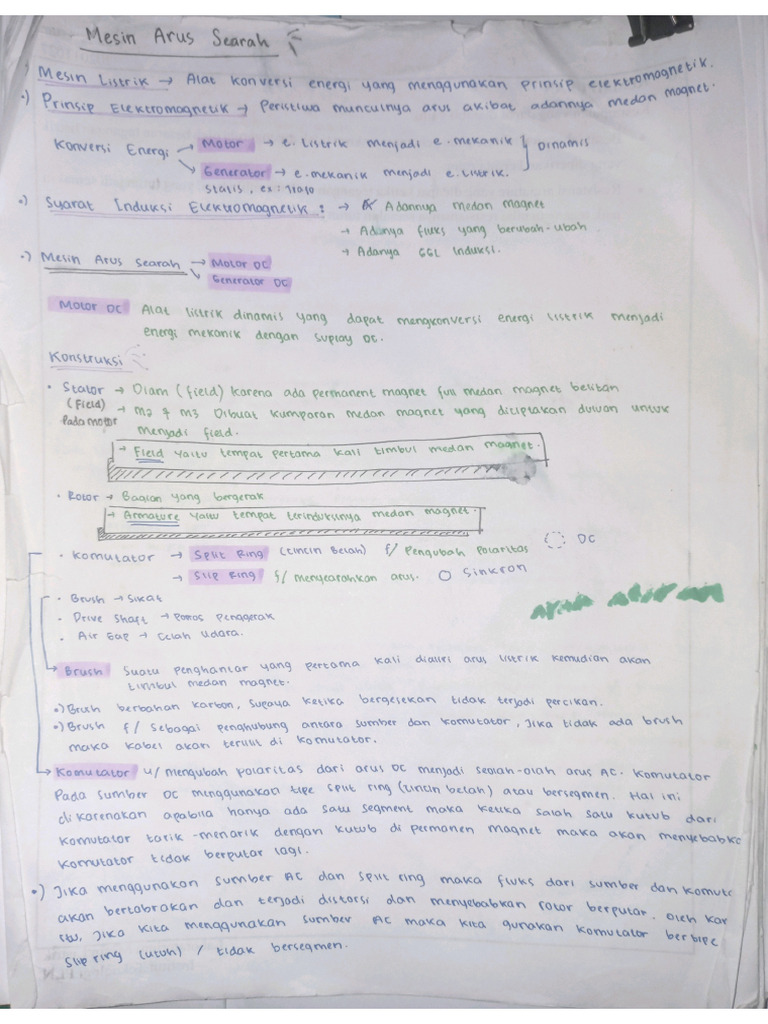 Mesin Arus Searah
Mesin Listrik → Alat konversi energi yang menggunakan prinsip elektromagnetik.
•) Prinsip Elektromagnetik → Peristiwa munculnya arus akibat adannya medan magnet.
Konversi Energi → Motor → e. Listrik menjadi e. mekanik } Dinamis
→ Generator → e. mekanik menjadi e. Listrik.
Statis, ex: Trafo
•) Syarat Induksi Elektromagnetik : → Adannya medan magnet
→ Adanya fluks yang berubah-ubah.
→ Adanya GGL Induksi.
•) Mesin Arus Searah → Motor DC
→ Generator DC
Motor DC Alat listrik dinamis yang dapat mengkonversi energi listrik menjadi
energi mekanik dengan suplay DC.
Konstruksi
• Stator → Diam (field) karena ada permanent magnet full medan magnet belitan
(Field) → M2 & M3 Dibuat kumparan medan magnet yang diciptakan duluan untuk
Pada motor menjadi field.
→ Field yaitu tempat pertama kali timbul medan magnet.
• Rotor → Bagian yang bergerak
→ Armature yaitu tempat terinduksinya medan magnet.
• Komutator → Split Ring (Cincin Belah) f/ Pengubah Polaritas DC
→ Slip Ring f/ menyearahkan arus. Sinkron
• Brush → Sikat
• Drive Shaft → Poros Penggerak
• Air Gap → Celah Udara.
Brush Suatu penghantar yang pertama kali dialiri arus listrik kemudian akan
timbul medan magnet.
•) Brush berbahan karbon, supaya ketika bergesekan tidak terjadi percikan.
•) Brush f/ sebagai penghubung antara sumber dan komutator, Jika tidak ada brush
maka kabel akan terlilit di komutator.
Komutator u/ mengubah polaritas dari arus DC menjadi seolah-olah arus AC. Komutator
Pada sumber DC menggunakan tipe split ring (cincin belah) atau bersegmen. Hal ini
di karenakan apabila hanya ada satu segment maka ketika salah satu kutub dari
komutator tarik-menarik dengan kutub di permanen magnet maka akan menyebabk
komutator tidak berputar lagi.
•) Jika menggunakan sumber AC dan split ring maka fluks dari sumber dan komut
akan bertabrakan dan terjadi distorsi dan menyebabkan rotor berputar. Oleh kar
itu, Jika kita menggunakan sumber AC maka kita gunakan komutator bertipe
Slip ring (utuh) / tidak bersegmen.